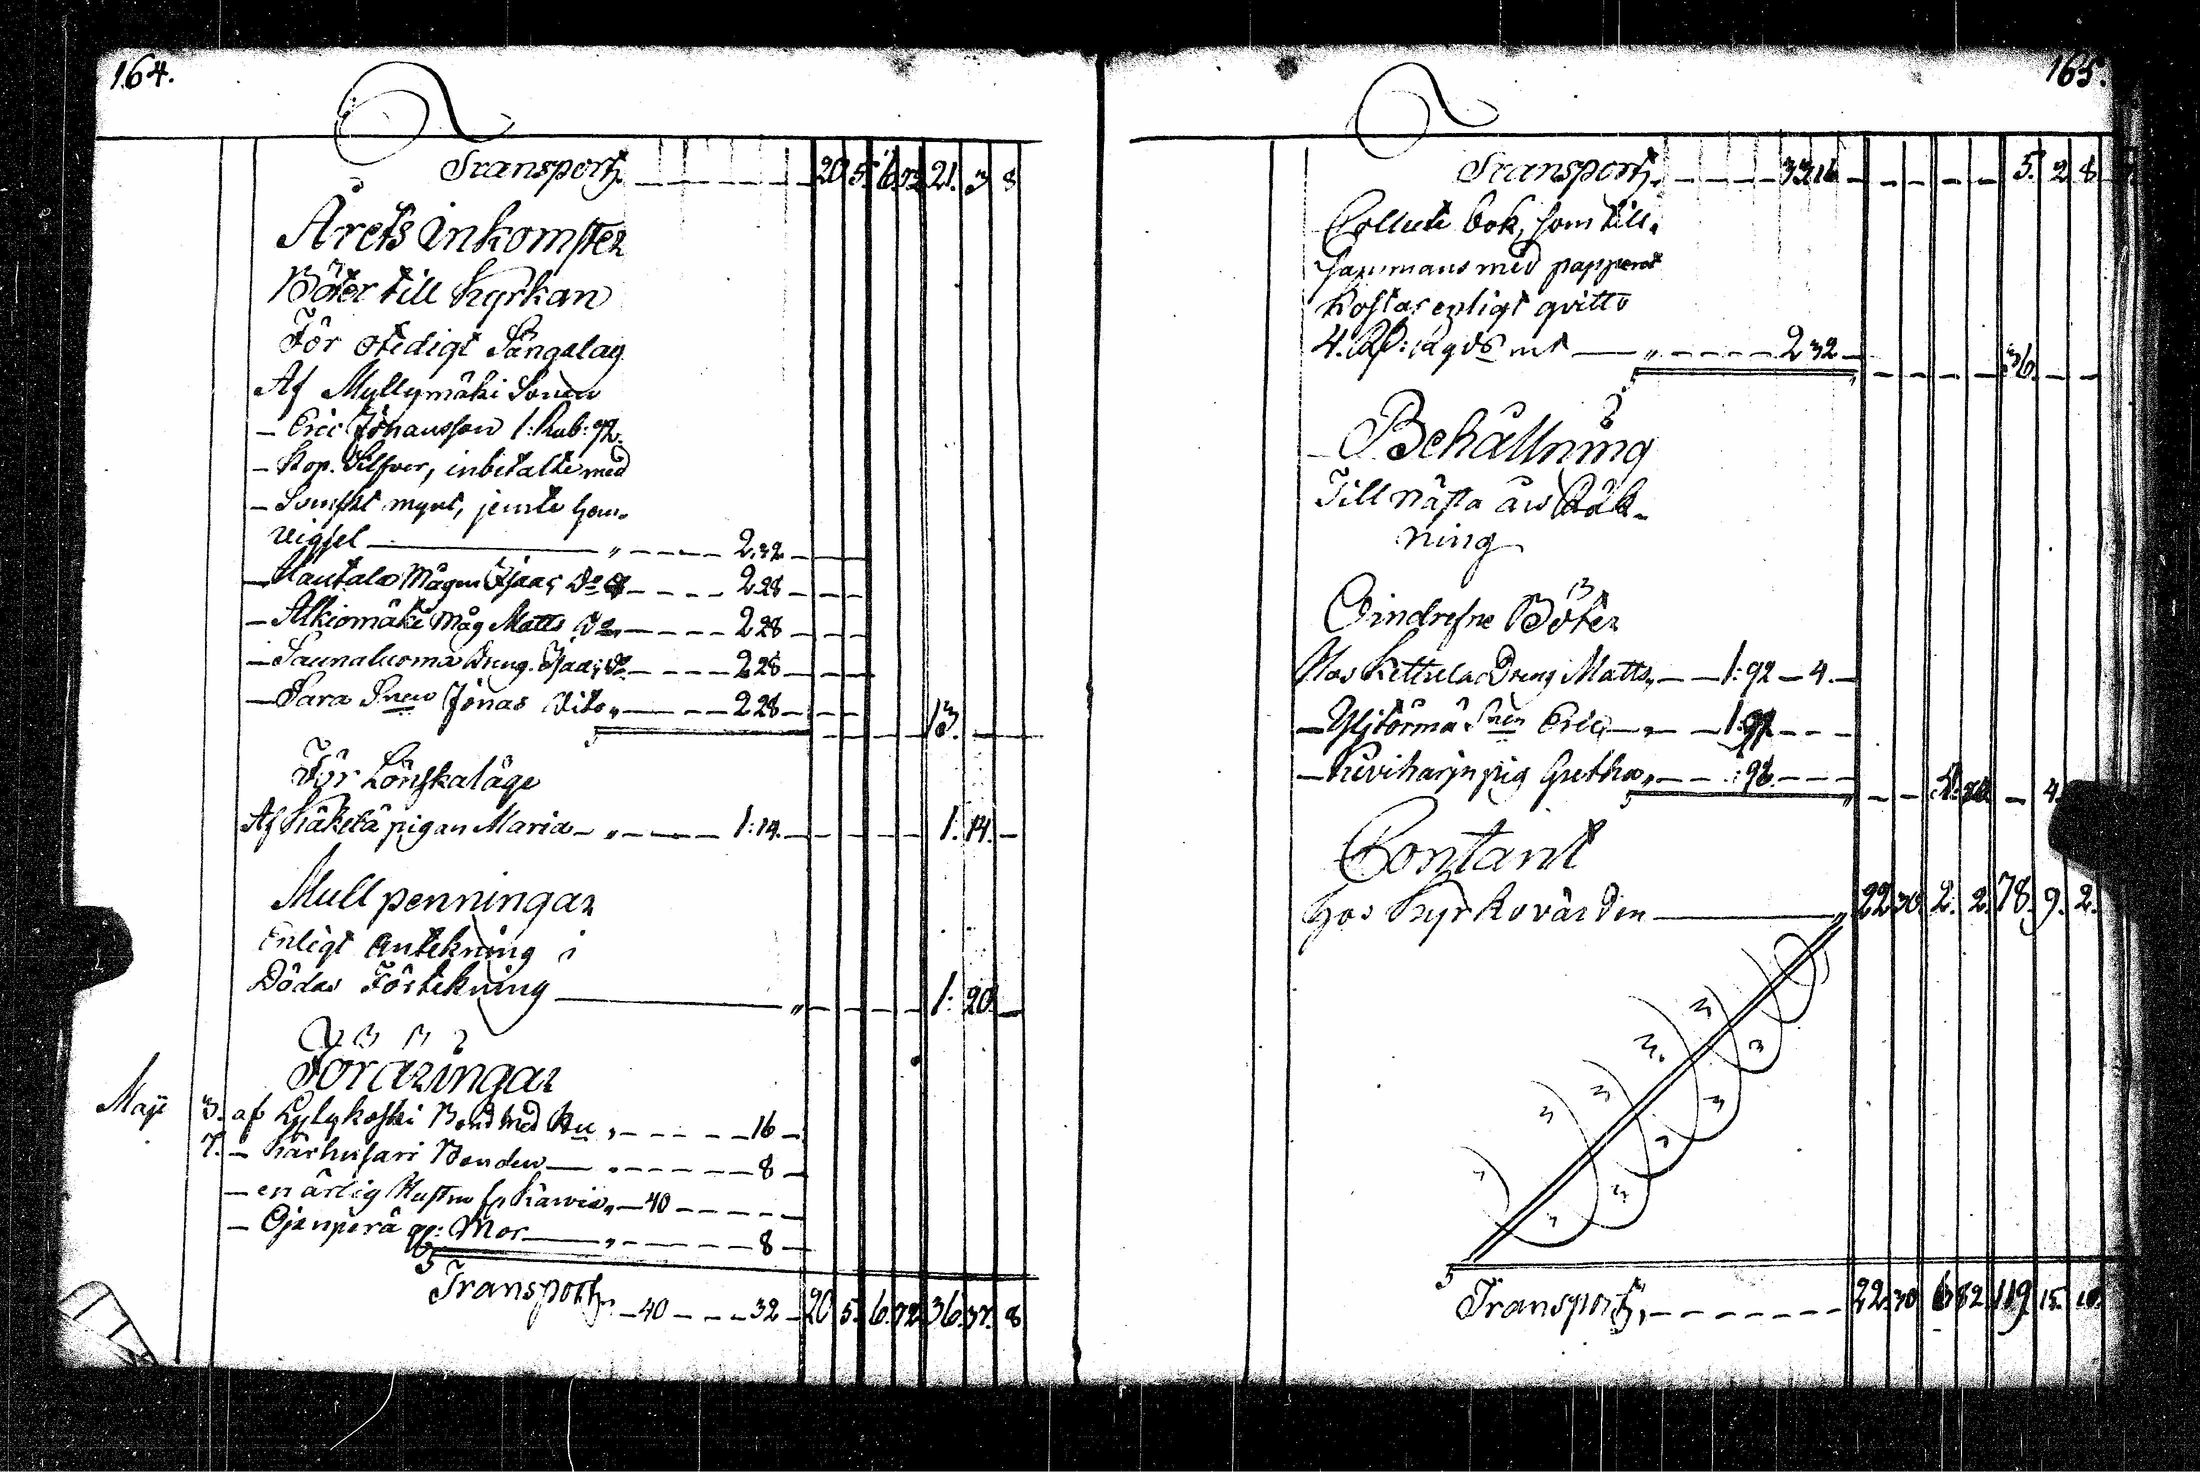 164.
Transport 20 5. 6. 72 21. 3 8
Årets inkomster
Böter till Kyrkan
För otidigt Sängalag
Af Myllymäki Sonen
- Eric Johansson 1: Rub: 92.
- Kop. Silfver, inbetalte med
- Svenskt mynt, jemte
2.32
- Rautala Mågen Isaac Do 2 28
- Alkiomäki Måg Matts Do 2 28
- Saunaluoma Dreng. Isaac Do 2 28
- Sara Snen Jonas Dito 2 28 13.
För Lönskaläge
Af Käkelä pigan Maria 1:14. 1. 14.
Mullpenningar
Enligt Antekning i
Dödas Förtekning 1: 20.
Föräringar
Maji 3. af Lylykoski Bond 16
7. - Karhusari Bonden 8
- en ärlig Hustru 40
- Ojanperä Mor 8
Transport 40 32 20 5. 6. 72 36. 37. 8
165.
Transport 33 16 5. 2 8
Collect bok, som till-
sammans med papperet
kostar enligt qvitto
4. 2 32 36.
Behållning
Till nästa års Räk-
ning
Oindrefne Böter
Hos Kettula Dreng Matts 1:92 4.
- Ylitörmä Snen Eric
- Kiviharju pig Gretha :96. 4.
Contant
hos Kyrkovärden 22 30. 2. 2. 78. 9. 2.
Transport, 22. 30 6 82. 119. 15. 10.